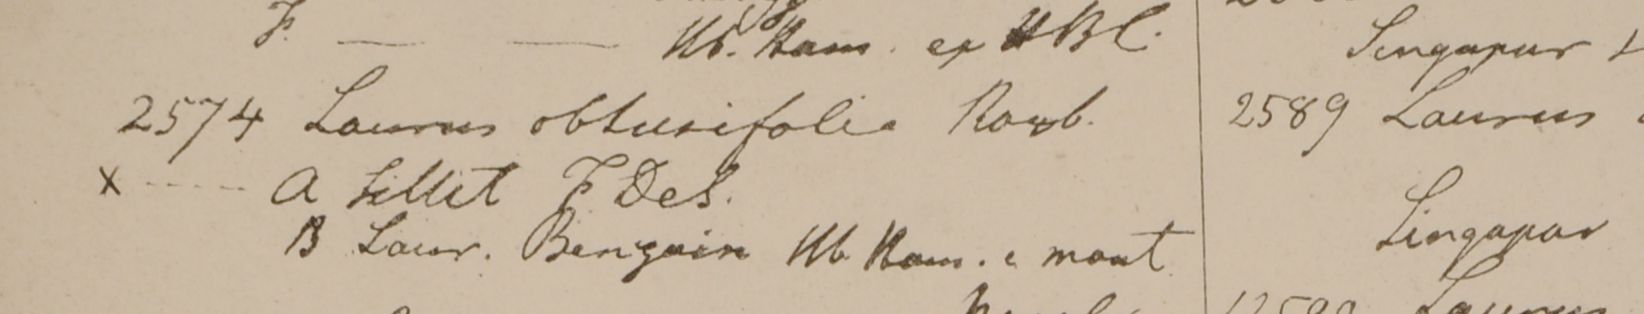 F. — — Hb. Ham. ex HBC.
2574 Laurus obtusifolia Roxb.
x ---- A Sillet F DeS.
B Laur. Benzoin Hb Ham. e mont
Singapur
2589 Laurus
Singapur
Laurus